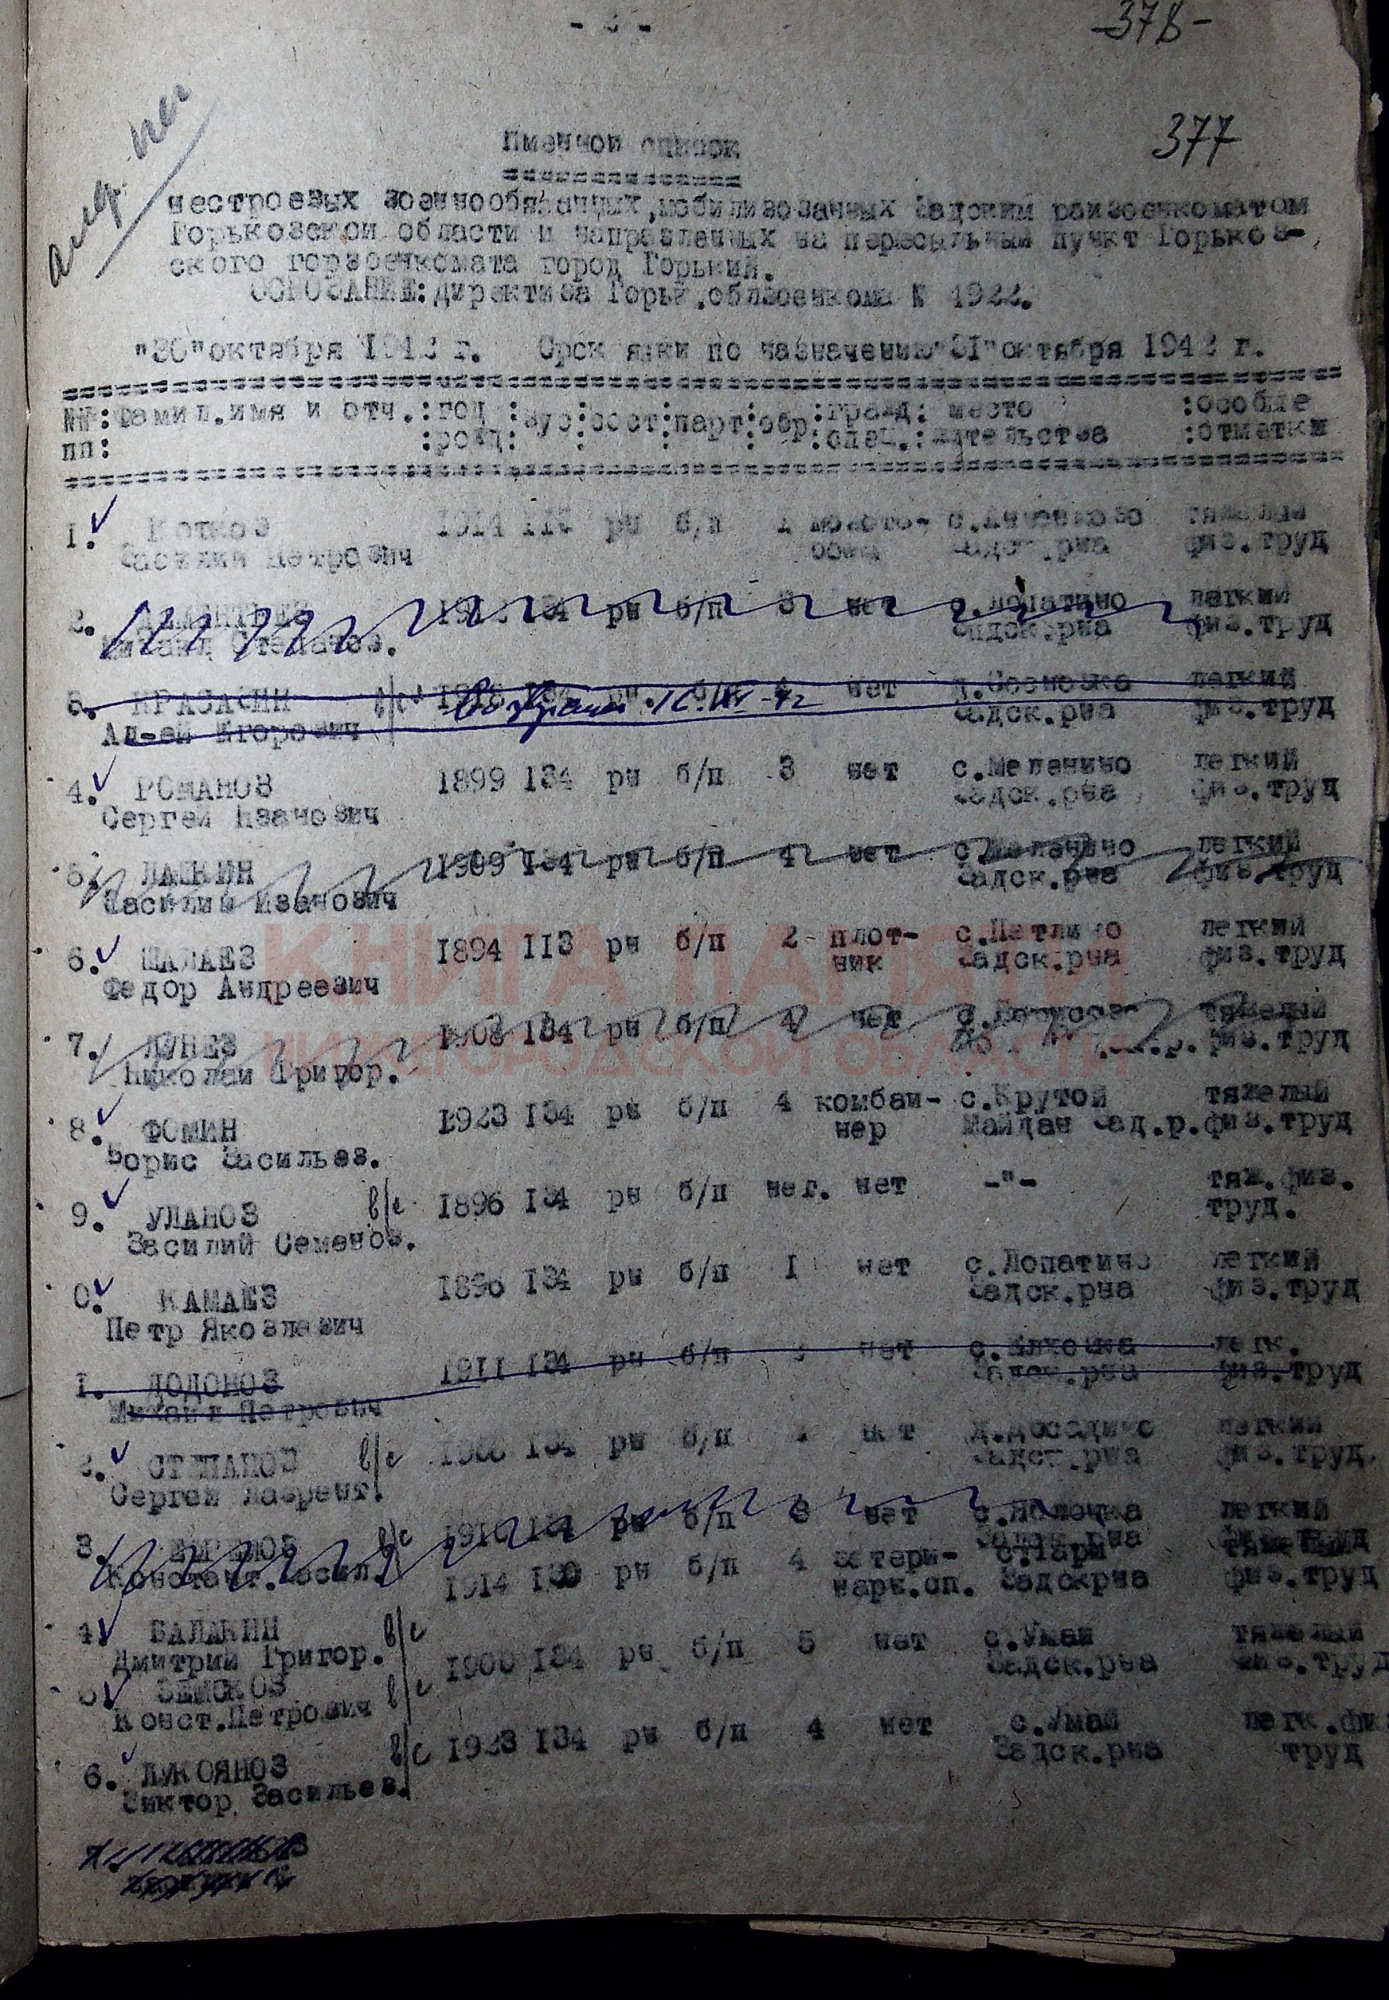 -378-
377
Именной список
нестроевых военнообязанных, мобилизованных Вадским райвоенкоматом
Горьковской области и направленных на пересыльный пункт Горьков-
ского горвоенкомата город Горький.
ОСНОВАНИЕ: Директива Горьк.облвоенкома № 4922.
"30" октября 1942 г. Срок явки по назначению "31" октября 1942 г.
№№:Фамил.имя и отч.:год :вус:сост:парт:обр:гражд: место :особые
пп: :рожд: : : : :спец.:жительства :отметки
1. 1914 113 рн б/п 1 с. тяжелый
Василий Петрович Вадск.рна физ.труд
2. 134 рн б/п 3 нет с.Лопатино легкий
Михаил Степанов. Вадск.рна физ.труд
3. в/с рн. б/п 4 нет д.Сосновка легкий
Егорович Вадск.рна физ.труд
4. РОМАНОВ 1899 134 рн б/п 3 нет с.Меленино легкий
Сергей Иванович Вадск.рна физ.труд
5. ЛАШКИН 1909 134 рн б/п 4 нет с.Меленино легкий
Василий Иванович Вадск.рна физ.труд
КНИГА ПАМЯТИ
НИЖЕГОРОДСКОЙ ОБЛАСТИ
6. ШАЛАЕВ 1894 113 рн б/п 2 плот- с.Петлино легкий
Федор Андреевич ник Вадск.рна физ.труд
7. ЛУНЕВ 1908 134 рн б/п 4 нет тяжелый
Николай Григор. физ.труд
8. ФОМИН 1923 134 рн б/п 4 комбай- с.Крутой тяжелый
Борис Васильев. нер Майдан Вад.р. физ.труд
9. УЛАНОВ в/с 1896 134 рн б/п нег. нет -"- тяж.физ.
Василий Семенов. труд.
0. КАМАЕВ 1896 134 рн б/п 1 нет с.Лопатино легкий
Петр Яковлевич Вадск.рна физ.труд
1. ДОДОНОВ 1911 134 рн б/п нет с.Елховка легк.
Михаил Петрович Вадск.рна физ.труд
2. СТЕПАНОВ в/с 134 рн б/п нет легкий
Сергей Лаврент. Вадск.рна физ.труд
3. в/с рн б/п 3 нет с.Яблонка легкий
Констант. Вадск.рна физ.труд
4. БАЛАКИН в/с 1914 130 рн б/п 4 ветери- тяжелый
Дмитрий Григор. нарн.сп. Вадскрна физ.труд
ЗЕМСКОВ в/с 1900 134 рн б/п 5 нет с.Умай тяжелый
Конст.Петрович Вадск.рна физ.труд
6. ЛУКОЯНОВ в/с 1923 134 рн б/п 4 нет с.Умай легк.физ
Виктор Васильев. Вадск.рна труд